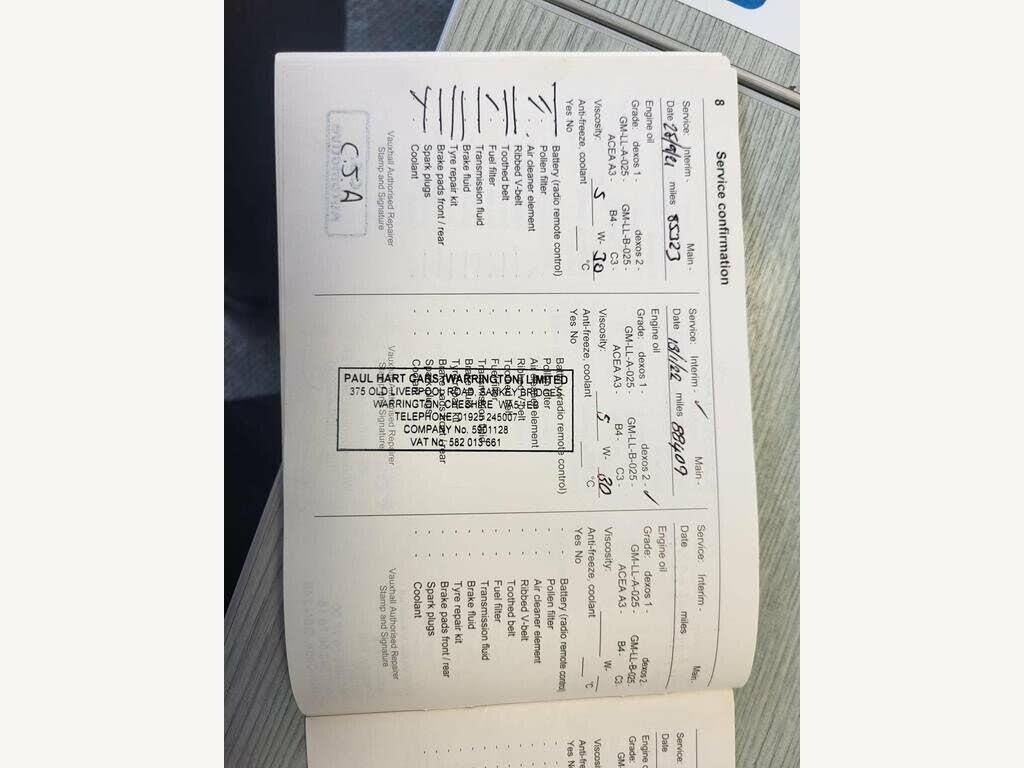 8 Service confirmation
Service: Interim - Main -
Date 25/9/21 miles 85323
Engine oil
Grade: dexos 1 - dexos 2 -
GM-LL-A-025 - GM-LL-B-025 -
ACEA A3 - B4 - C3 -
Viscosity: 5 W- 30
Anti-freeze, coolant °C
Yes No
Battery (radio remote control)
Pollen filter
Air cleaner element
Ribbed V-belt
Toothed belt
Fuel filter
Transmission fluid
Brake fluid
Tyre repair kit
Brake pads front / rear
Spark plugs
Coolant
Vauxhall Authorised Repairer
Stamp and Signature
C.S.A
Service: Interim ✓ Main -
Date 13/1/22 miles 88409
Engine oil
Grade: dexos 1 dexos 2 - ✓
GM-LL-A-025 - GM-LL-B-025 -
ACEA A3 - B4 - C3 -
Viscosity: 5 W- 30
Anti-freeze, coolant °C
Yes No
Battery (radio remote control)
Pollen filter
Air cleaner element
Ribbed V-belt
Toothed belt
Fuel filter
Transmission fluid
Brake fluid
Tyre repair kit
Brake pads front / rear
Spark plugs
Coolant
Vauxhall Authorised Repairer
Stamp and Signature
PAUL HART CARS (WARRINGTON) LIMITED
375 OLD LIVERPOOL ROAD, SANKEY BRIDGE
WARRINGTON, CHESHIRE, WA5
TELEPHONE: 01925 245007
COMPANY No. 5901128
VAT No. 582 013 661
Service: Interim - Main -
Date miles
Engine oil
Grade: dexos 1 - dexos 2 -
GM-LL-A-025 - GM-LL-B-025 -
ACEA A3 - B4 - C3 -
Viscosity: W-
Anti-freeze, coolant °C
Yes No
Battery (radio remote control)
Pollen filter
Air cleaner element
Ribbed V-belt
Toothed belt
Fuel filter
Transmission fluid
Brake fluid
Tyre repair kit
Brake pads front / rear
Spark plugs
Coolant
Vauxhall Authorised Repairer
Stamp and Signature
Service:
Date
Engine
Grade:
GM
Viscosi
Anti-fre
Yes No